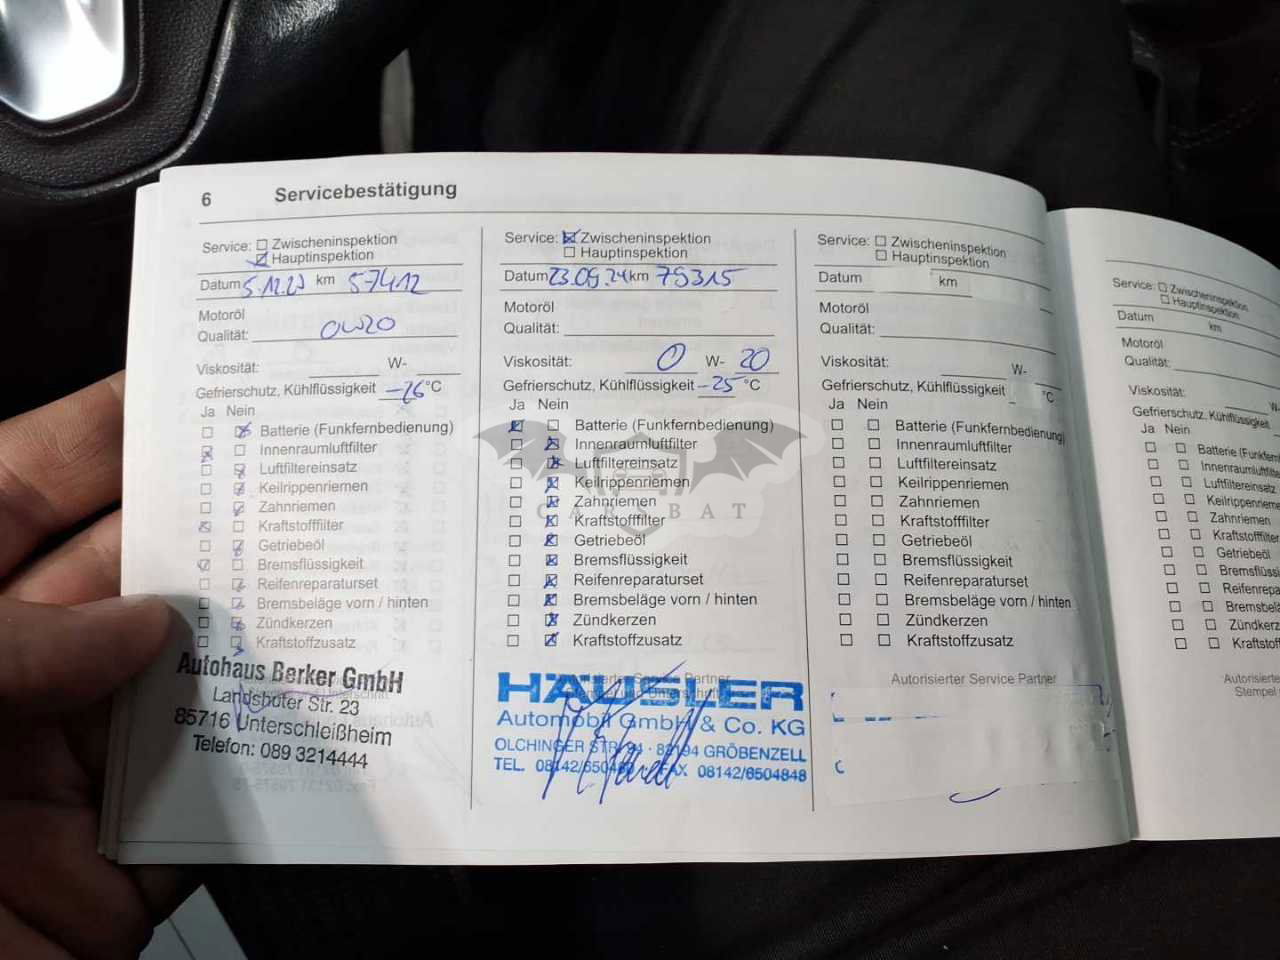 6 Servicebestätigung
Service: Zwischeninspektion
Hauptinspektion
Datum 5.12.23 km 57412
Motoröl
Qualität: 0W20
Viskosität: W-
Gefrierschutz, Kühlflüssigkeit -26 °C
Ja Nein
Batterie (Funkfernbedienung)
Innenraumluftfilter
Luftfiltereinsatz
Keilrippenriemen
Zahnriemen
Kraftstofffilter
Getriebeöl
Bremsflüssigkeit
Reifenreparaturset
Bremsbeläge vorn / hinten
Zündkerzen
Kraftstoffzusatz
Autohaus Berker GmbH
Landshuter Str. 23
85716 Unterschleißheim
Telefon: 089 3214444
Service: Zwischeninspektion
Hauptinspektion
Datum 23.09.24 km 79315
Motoröl
Qualität:
Viskosität: 0 W- 20
Gefrierschutz, Kühlflüssigkeit -25 °C
Ja Nein
Batterie (Funkfernbedienung)
Innenraumluftfilter
Luftfiltereinsatz
Keilrippenriemen
Zahnriemen
Kraftstofffilter
Getriebeöl
Bremsflüssigkeit
Reifenreparaturset
Bremsbeläge vorn / hinten
Zündkerzen
Kraftstoffzusatz
Service Partner
HÄUSLER
Automobil GmbH & Co. KG
OLCHINGER STR. 94 · 82194 GRÖBENZELL
TEL. FAX 08142/6504848
CARSBAT
Service: Zwischeninspektion
Hauptinspektion
Datum km
Motoröl
Qualität:
Viskosität: W-
Gefrierschutz, Kühlflüssigkeit °C
Ja Nein
Batterie (Funkfernbedienung)
Innenraumluftfilter
Luftfiltereinsatz
Keilrippenriemen
Zahnriemen
Kraftstofffilter
Getriebeöl
Bremsflüssigkeit
Reifenreparaturset
Bremsbeläge vorn / hinten
Zündkerzen
Kraftstoffzusatz
Autorisierter Service Partner
Service: Zwischeninspektion
Hauptinspektion
Datum km
Motoröl
Qualität:
Viskosität: W
Gefrierschutz, Kühlflüssigkeit
Ja Nein
Batterie (Funkfern
Innenraumluftfil
Luftfiltereinsatz
Keilrippenrieme
Zahnriemen
Kraftstofffilter
Getriebeöl
Bremsflüssi
Reifenrepar
Bremsbelä
Zündkerze
Kraftstoff
Autorisierte
Stempel